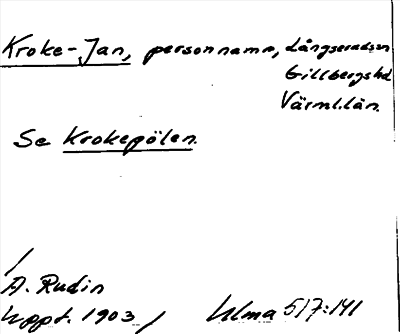 Kroke-Jan, personnamn, Långseruds sn
Gillbergs hd
Värml. län.
Se Krokepölen.
A. Rudin
Uppt. 1903 / Ulma 517:141